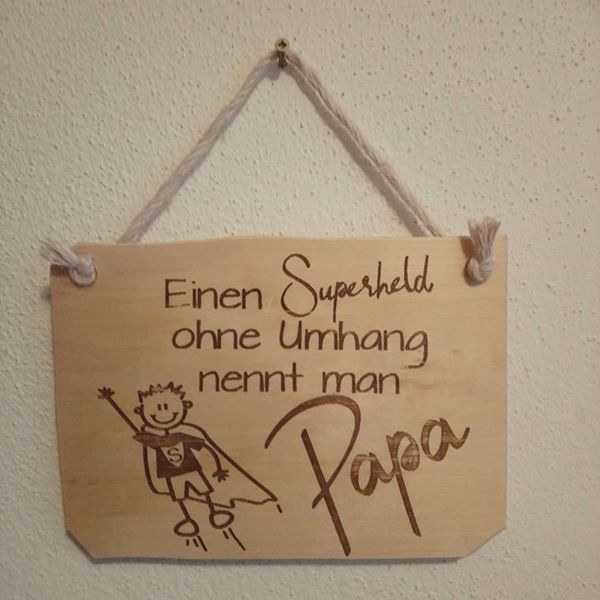 Einen Superheld
ohne Umhang
nennt man
Papa
S